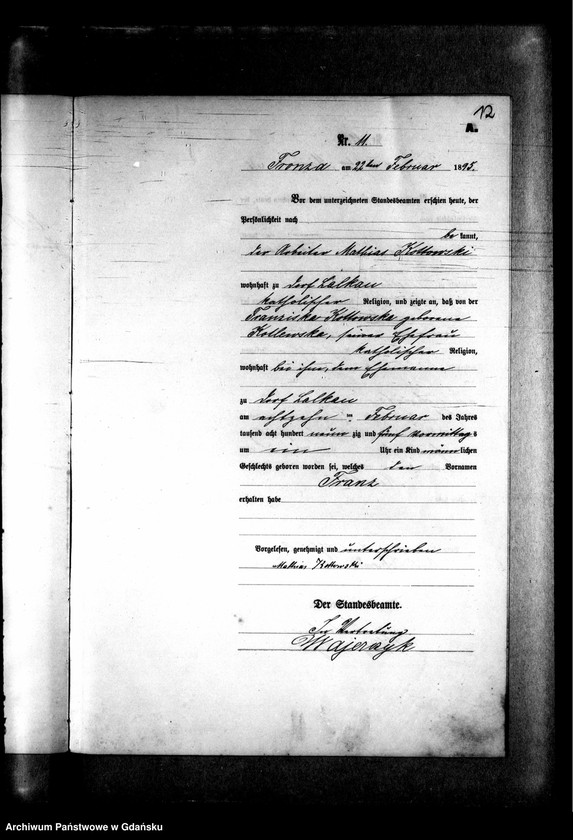 12
A.
Nr. 11.
Fronza am 22ten Februar 1895.
Vor dem unterzeichneten Standesbeamten erschien heute, der
Persönlichkeit nach
be kannt,
der Arbeiter Mathias Kottowski
wohnhaft zu Dorf Lalkau
katholischer Religion, und zeigte an, daß von der
Franziska Kottowska geborene
Kotlewska, seiner Ehefrau
katholischer Religion,
wohnhaft bei ihm, dem Ehemanne
zu Dorf Lalkau
am achtzehn ten Februar des Jahres
tausend acht hundert neun zig und fünf Vormittags
um ein Uhr ein Kind männlichen
Geschlechts geboren worden sei, welches den Vornamen
Franz
erhalten habe
Vorgelesen, genehmigt und unterschrieben
Mathias Kottowski
Der Standesbeamte.
In Vertretung
Wajerzyk
Archiwum Państwowe w Gdańsku